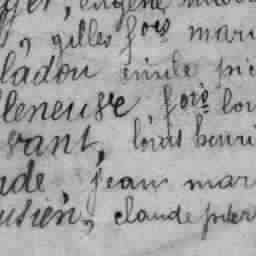 , eugène
, gilles fois mari
ladou emile pie
leneuse, fois lou
vant, louis henri
de, jean mar
usien, claude pier